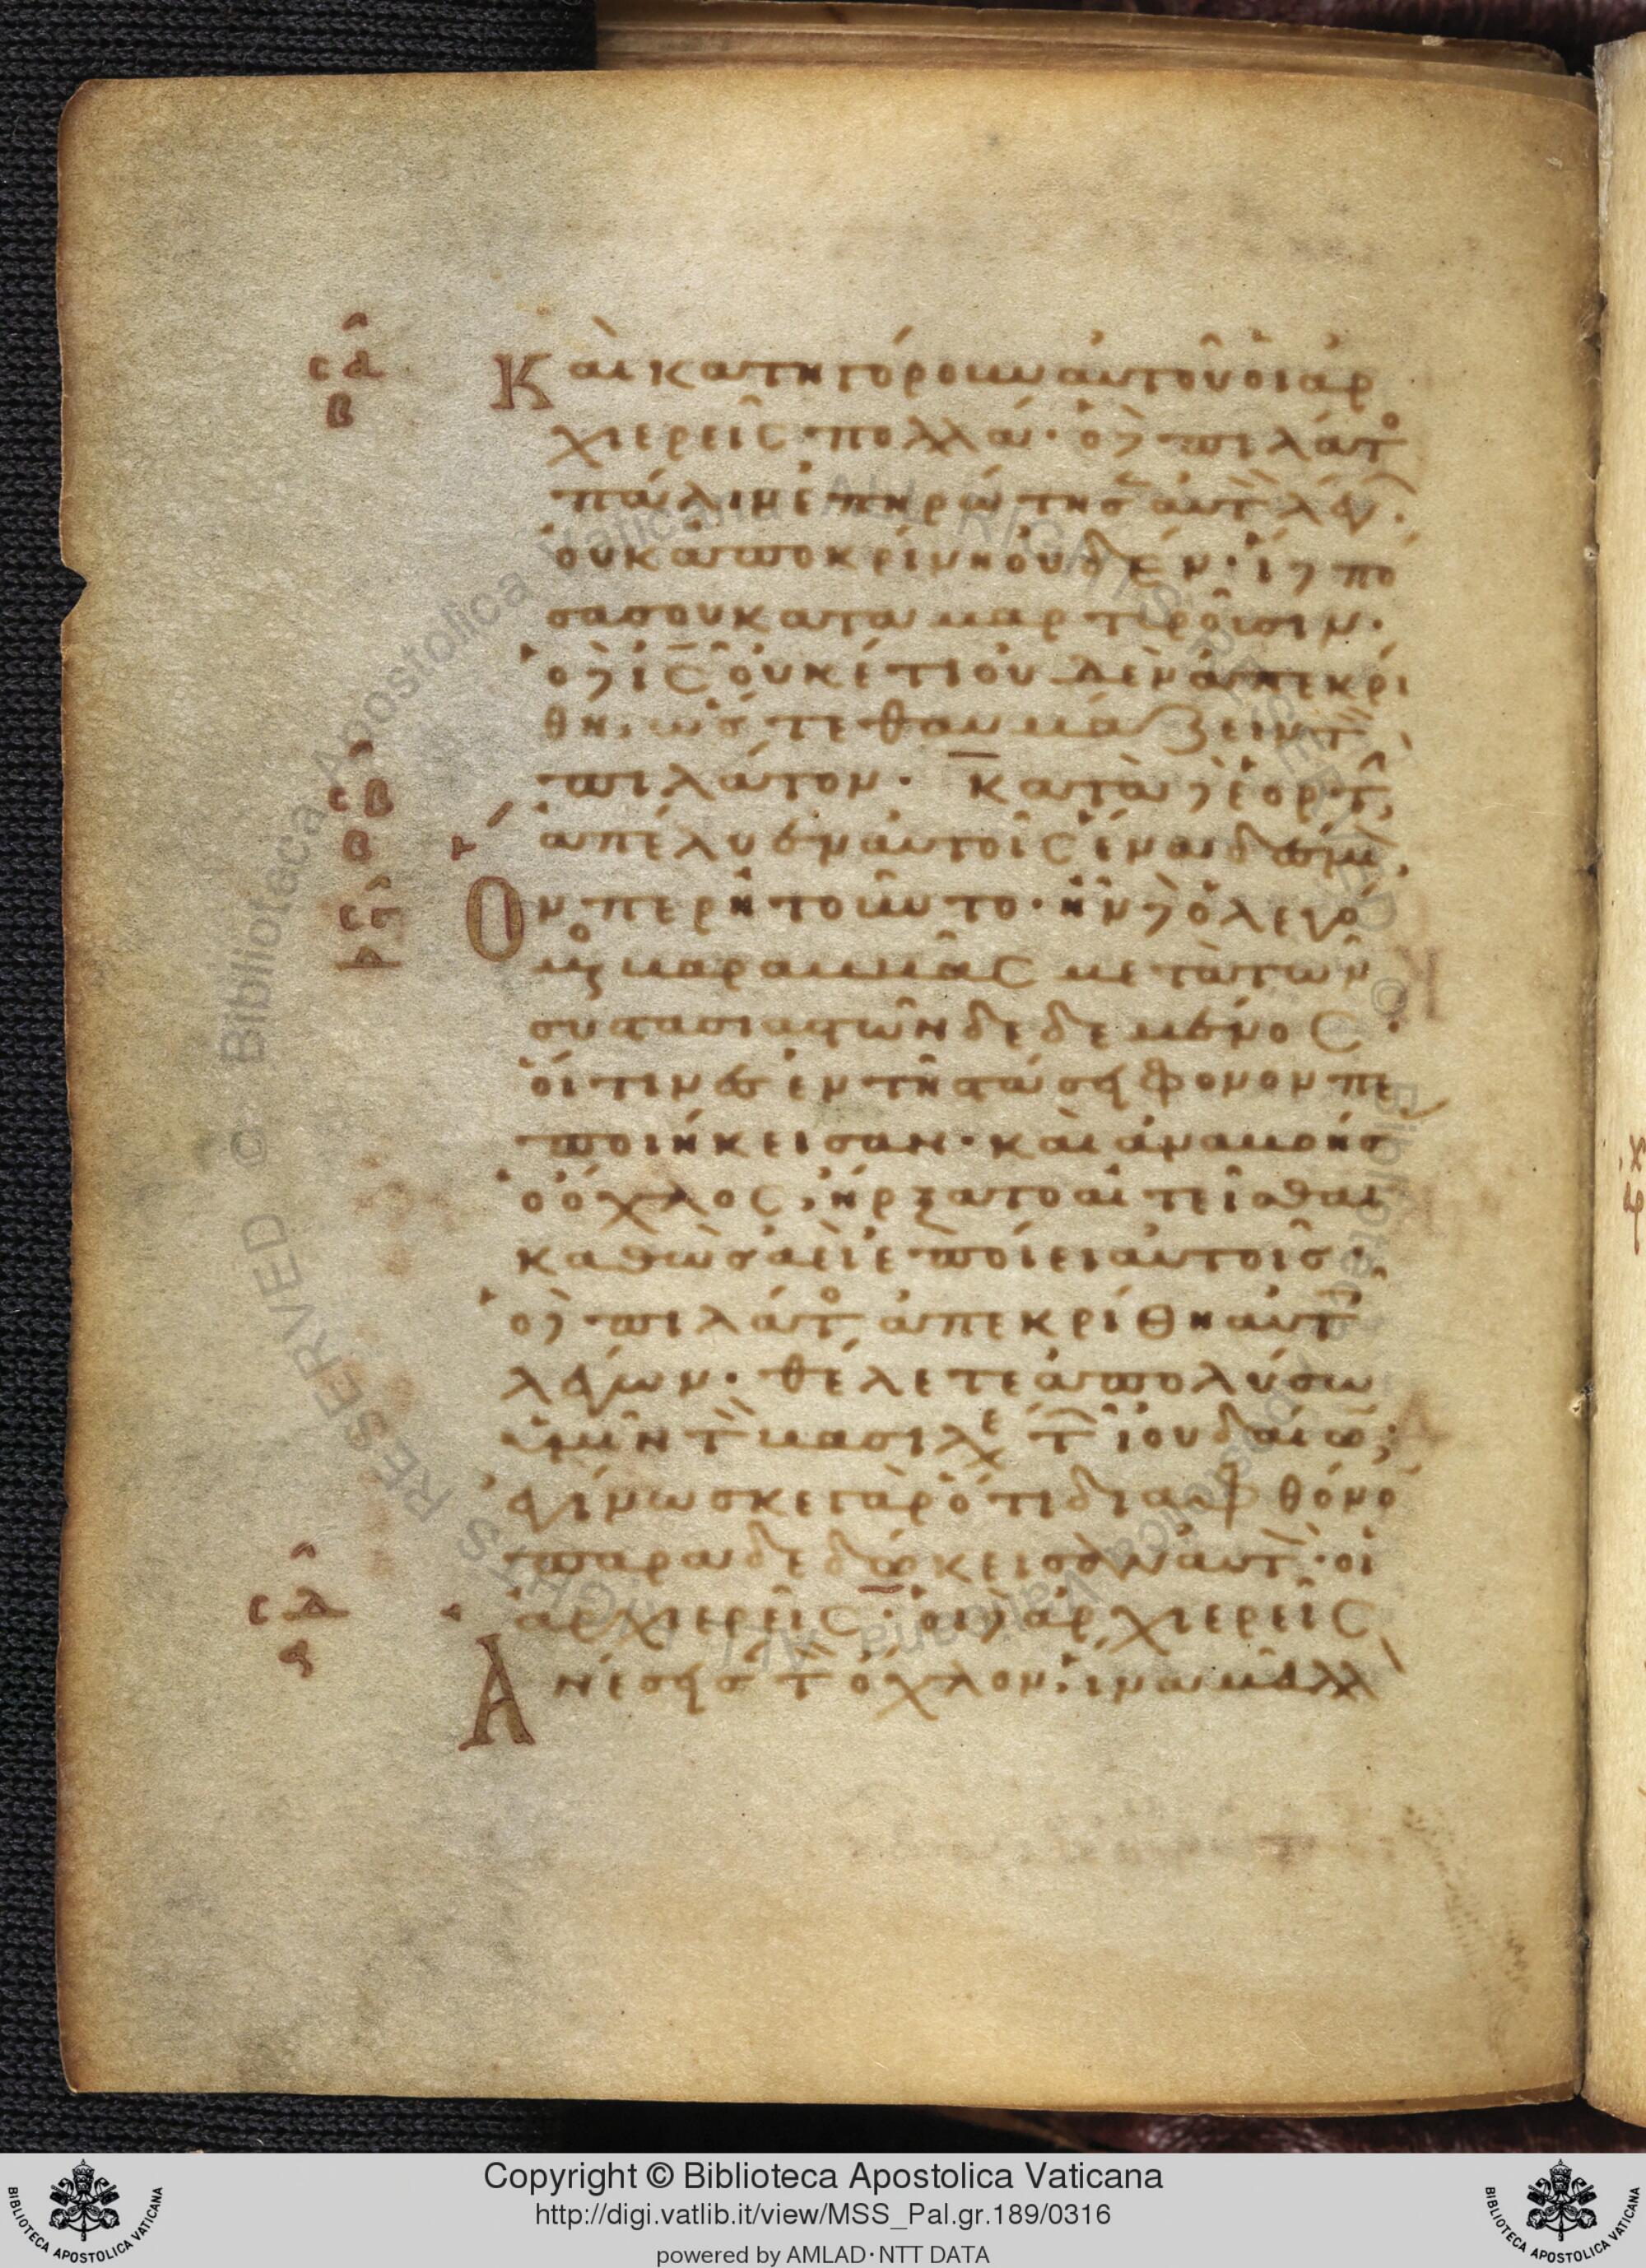 σα
β
Καὶ κατηγόρουν αὐτοῦ οἱ ἀρ
χιερεῖς πολλά· ὁ δὲ πιλάτο
πάλιν ἐπηρώτησεν αὐτὸν λέγων·
οὐκ ἀποκρίνη οὐδέν· ἴδε πό
σα σου καταμαρτυροῦσιν·
ὁ δὲ ις οὐκέτι οὐδὲν ἀπεκρί
θη, ὥστε θαυμάζειν τὸν
πιλάτον· κατὰ δὲ ἑορτὴν
σβ
β
ἀπέλυεν αὐτοῖς ἕνα δέσμιον,
σγ
δ
Ὅνπερ ἠτοῦντο· ἦν δὲ ὁ λεγό
μενος βαραββᾶς μετὰ τῶν
συστασιαστῶν δεδεμένος·
οἵτινες ἐν τῆ στάσει φόνον πε
ποιήκεισαν· καὶ ἀναβοήσ
ὁ ὄχλος, ἤρξατο αἰτεῖσθαι
καθὼς ἀεὶ ἐποίει αὐτοῖς·
ὁ δὲ πιλάτος ἀπεκρίθη αὐτοῖς
λέγων· θέλετε ἀπολύσω
ὑμῖν τὸν βασιλέα τῶν ἰουδαίων;
ἐγίνωσκε γὰρ ὅτι διὰ φθόνο
παραδεδώκεισαν αὐτὸν· οἱ
ἀρχιερεῖς· οἱ δὲ ἀρχιερεῖς
σδ
Ἀνέσεισαν τὸν ὄχλον, ἵνα μᾶλλ
Copyright © Biblioteca Apostolica Vaticana
http://digi.vatlib.it/view/MSS_Pal.gr.189/0316
powered by AMLAD·NTT DATA
BIBLIOTECA APOSTOLICA VATICANA
BIBLIOTECA APOSTOLICA VATICANA